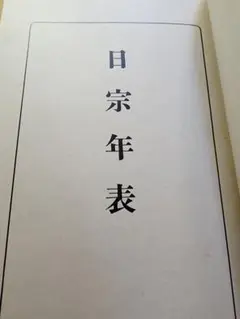 日宗年表